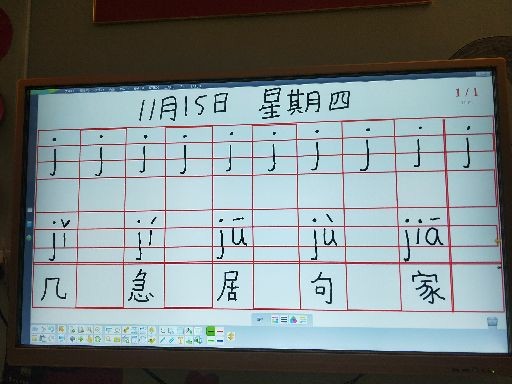 11月15日 星期四
1/1
j j j j j j j j j j
jǐ jí jū jù jiā
几 急 居 句 家